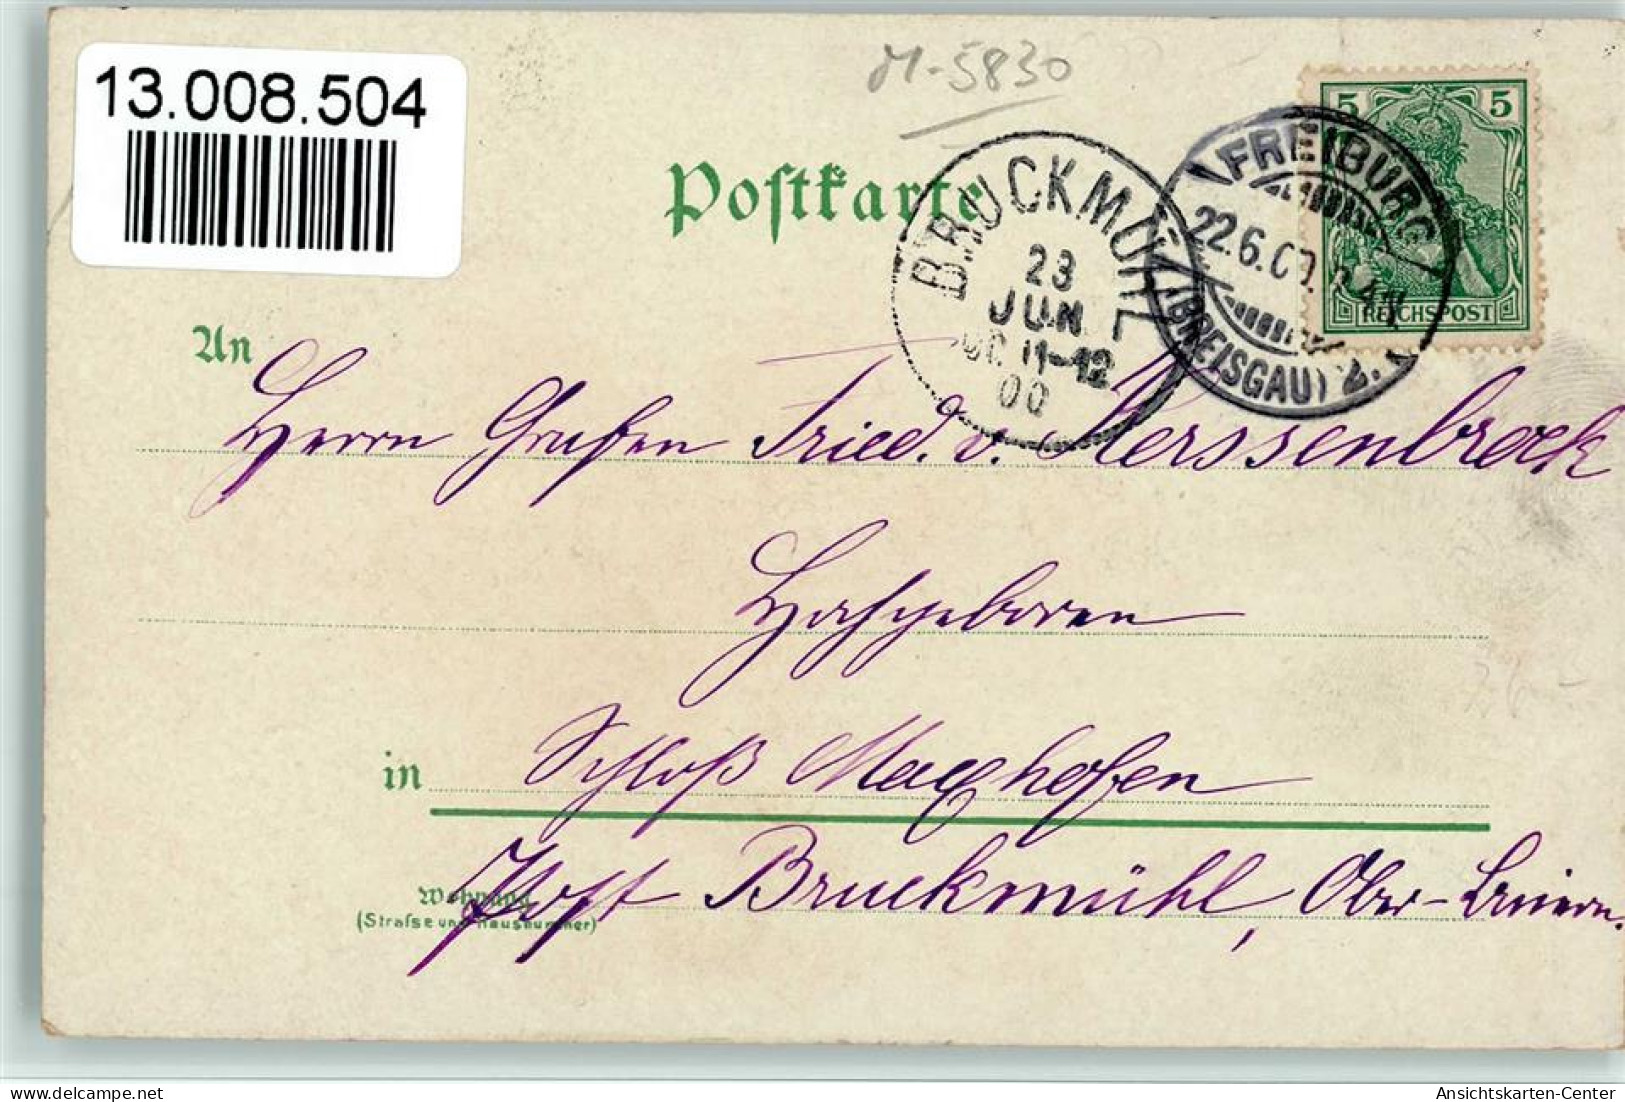 13.008.504
M-5830
5 5
REICHSPOST
FREIBURG
22.6.00.
(BREISGAU)
BRUCKMÜHL
23
JUN
11-12
00
Postkarte
An
Herrn Grafen Fried. v. Kerssenbrock
Hochgeboren
in Schloß Maxhofen
Post Bruckmühl, Ober-Baiern.
Wohnung
(Straße und Hausnummer)
Ansichtskarten-Center